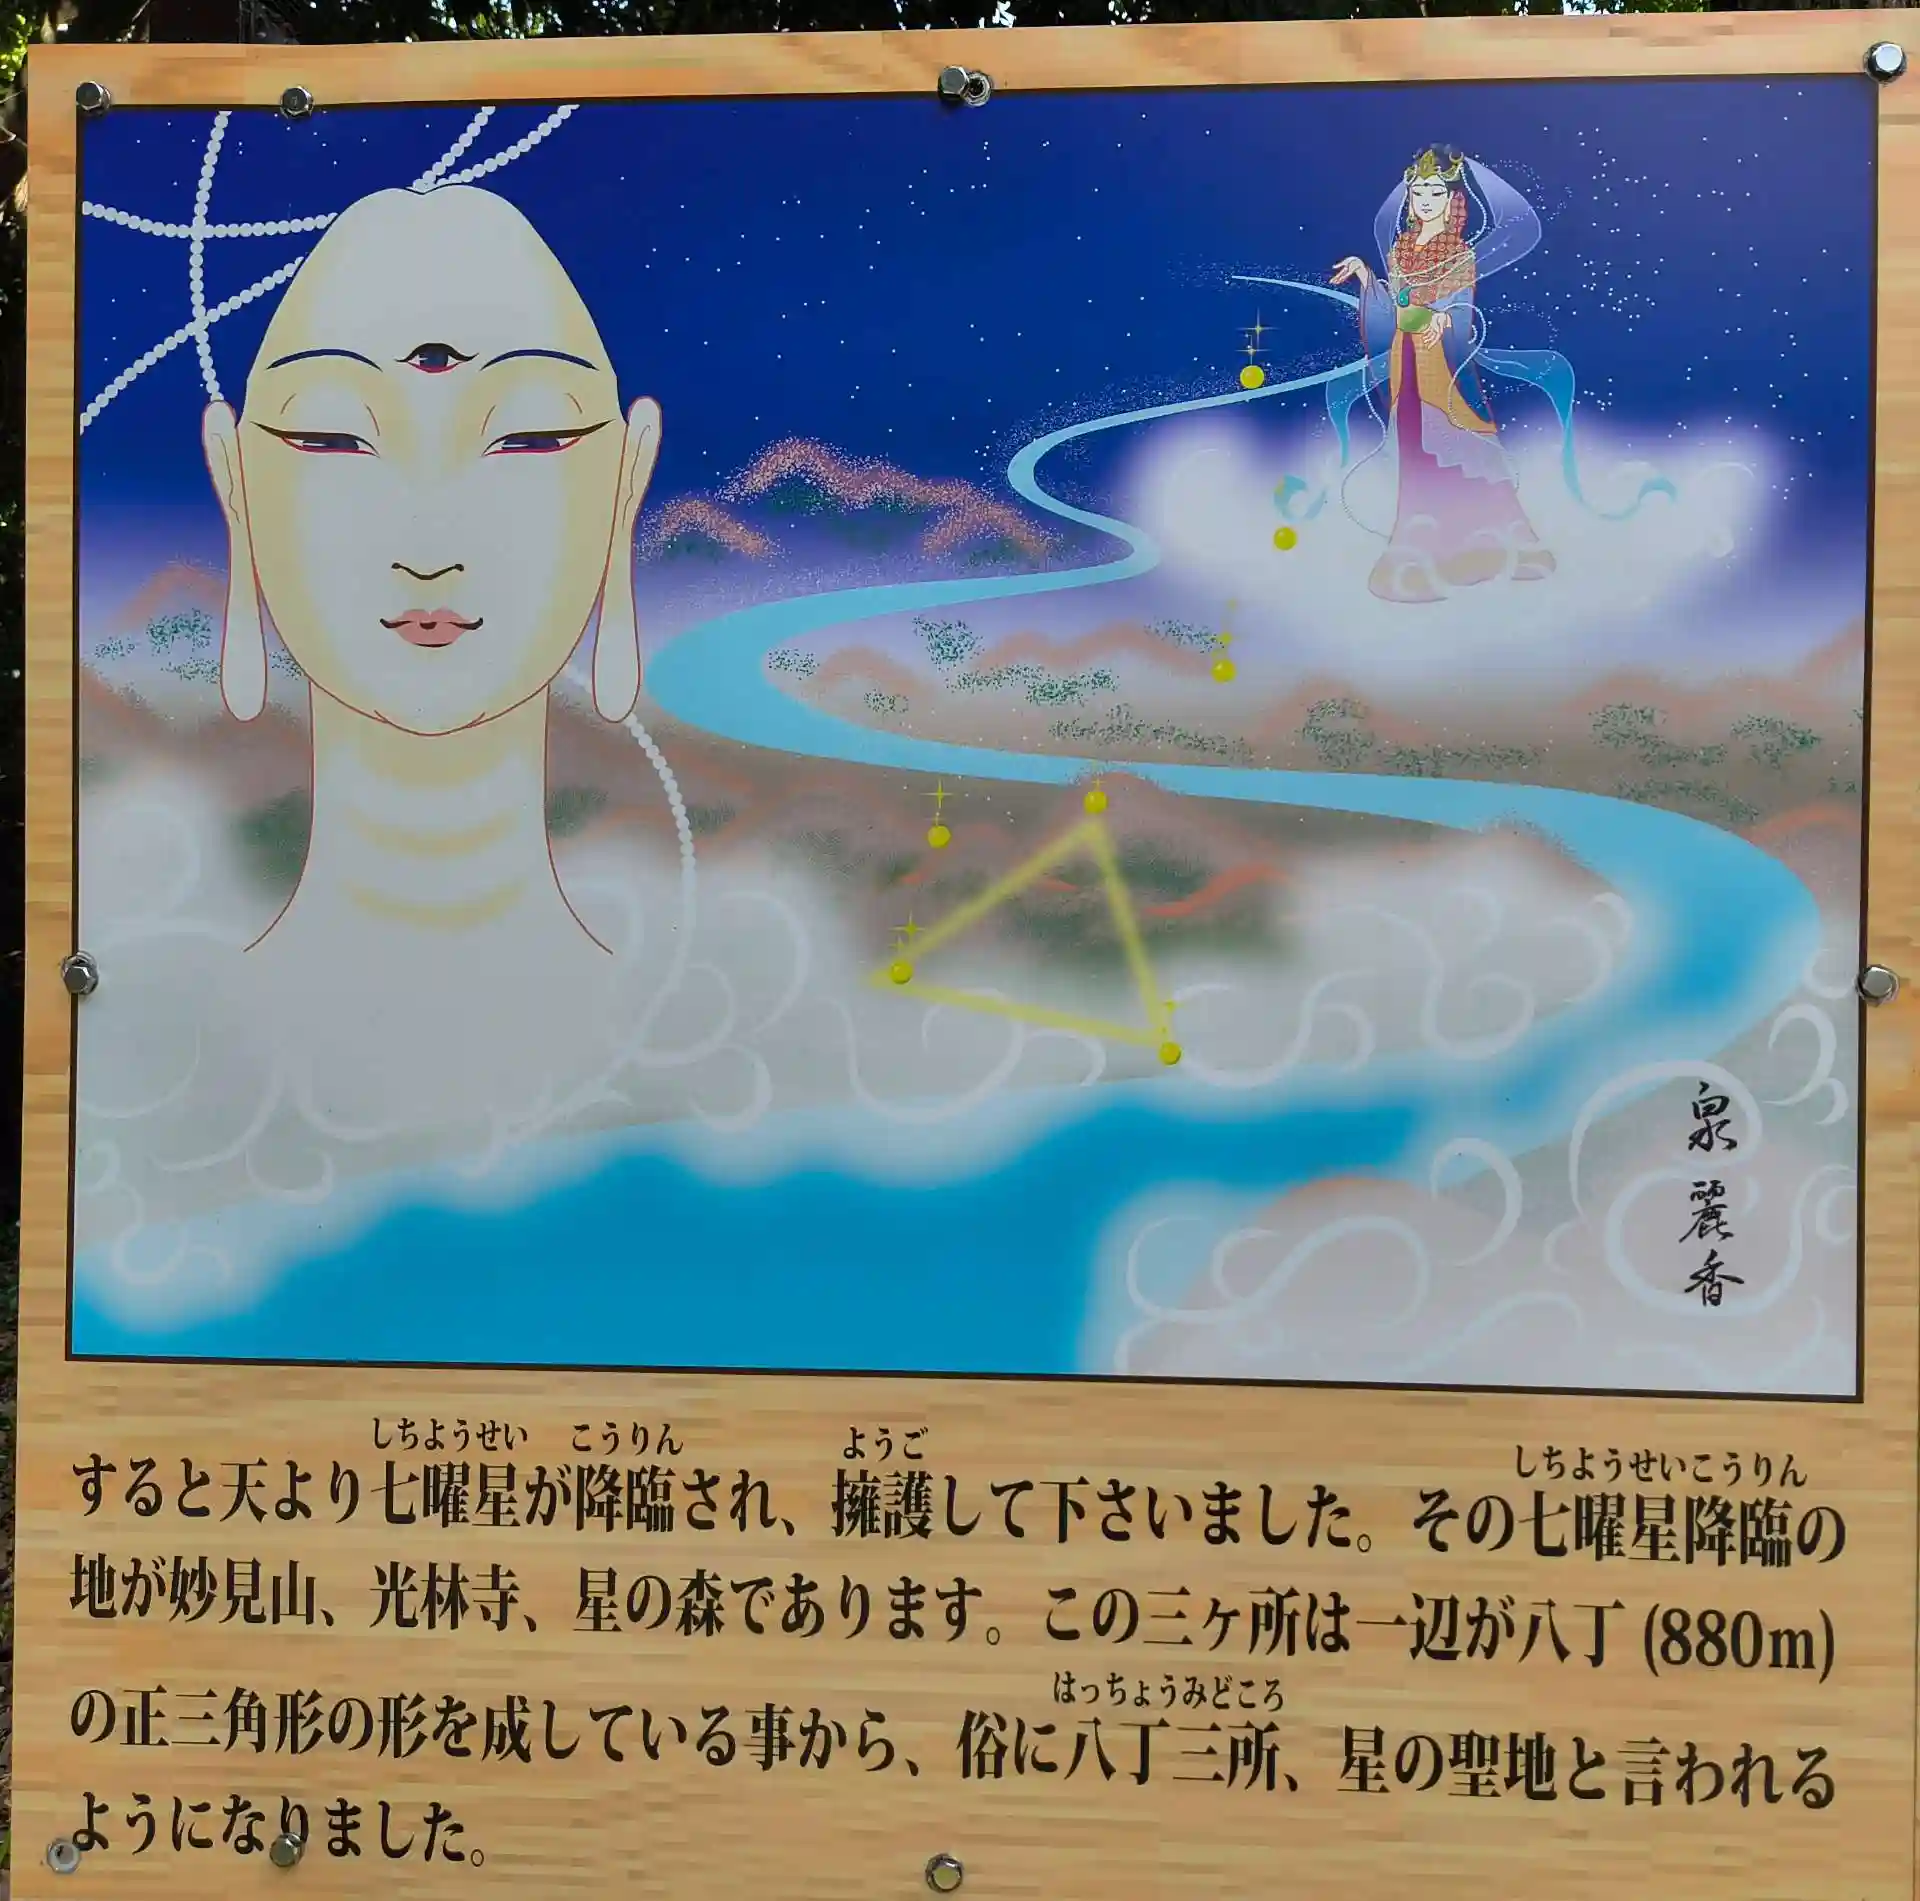 泉麗香
しちようせい こうりん ようご しちようせいこうりん
すると天より七曜星が降臨され、擁護して下さいました。その七曜星降臨の
地が妙見山、光林寺、星の森であります。この三ヶ所は一辺が八丁(880m)
はっちょうみどころ
の正三角形の形を成している事から、俗に八丁三所、星の聖地と言われる
ようになりました。